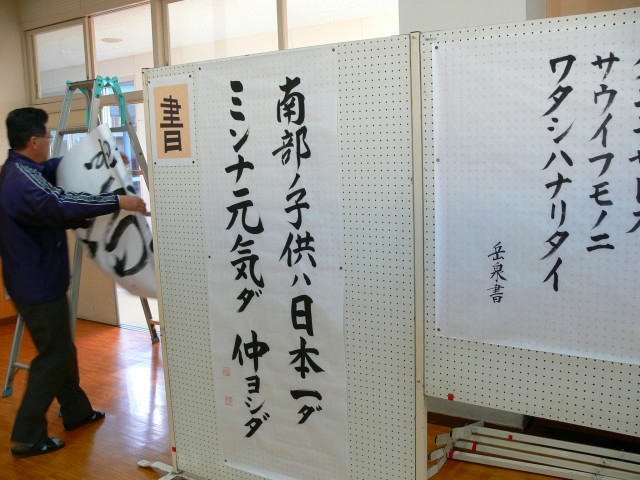 書
南部ノ子供ハ日本一ダ
ミンナ元気ダ 仲ヨシダ
サウイフモノニ
ワタシハナリタイ
岳泉書